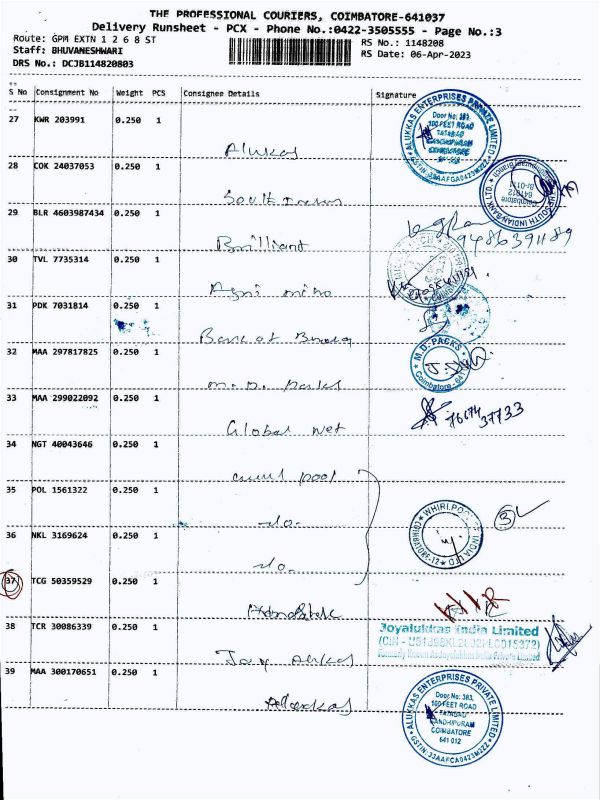 THE PROFESSIONAL COURIERS, COIMBATORE-641037
Delivery Runsheet - PCX - Phone No.:0422-3505555 - Page No.:3
Route: GPM EXTN 1 2 6 8 ST
RS No.: 1148208
Staff: BHUVANESHWARI
RS Date: 06-Apr-2023
DRS No.: DCJB114820803
S No Consignment No Weight PCS Consignee Details Signature
27 KWR 203991 0.250 1
Alukas
ALUKKAS ENTERPRISES PRIVATE LIMITED
Door No: 383,
100 FEET ROAD
TATABAD
28 COK 24037053 0.250 1
South Indian
THE SOUTH INDIAN BANK LTD.
Coimbatore
641012
29 BLR 4603987434 0.250 1
Brilliant
9486391189
30 TVL 7735314 0.250 1
Agni
31 PDK 7031814 0.250 1
Bank of Baroda
32 MAA 297817825 0.250 1
M.D. Packs
M.D. PACKS
Coimbatore - 641
33 MAA 299022092 0.250 1
Global Net
76674
37733
34 NGT 40043646 0.250 1
pool
35 POL 1561322 0.250 1
-do-
WHIRLPOOL OF INDIA LTD
COIMBATORE-12
3
36 NKL 3169624 0.250 1
-do-
37 TCG 50359529 0.250 1
38 TCR 30086339 0.250 1
Joy Alukas
Joyalukkas India Limited
Formerly Known As Joyalukkas India Private Limited
39 MAA 300170651 0.250 1
Allukkas
ALUKKAS ENTERPRISES PRIVATE LIMITED
Door No: 383,
100 FEET ROAD
TATABAD
GANDHIPURAM
COIMBATORE
641 012
GSTIN:33AAFCA0423M2ZZ